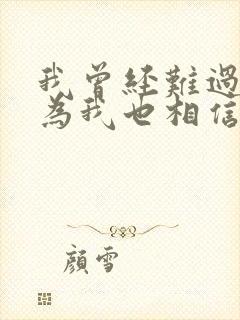 我曾經難過
為我也相信
顏雪